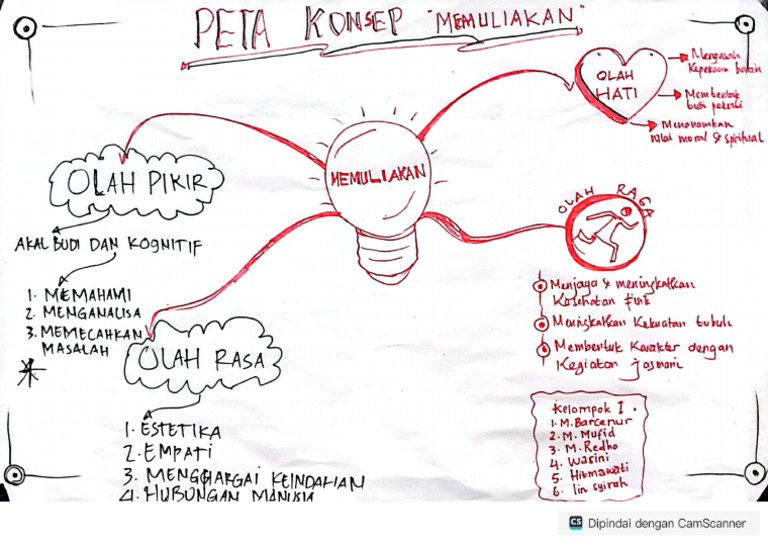 PETA KONSEP "MEMULIAKAN"
MEMULIAKAN
OLAH PIKIR
AKAL BUDI DAN KOGNITIF
1. MEMAHAMI
2. MENGANALISA
3. MEMECAHKAN
MASALAH
OLAH RASA
1. ESTETIKA
2. EMPATI
3. MENGHARGAI KEINDAHAN
4. HUBUNGAN MANUSIA
OLAH
HATI
Mengasah
Kepekaan batin
Membentuk
budi pekerti
Menanamkan
nilai moral & spiritual
OLAH RAGA
Menjaga & meningkatkan
Kesehatan fisik
Meningkatkan Kekuatan tubuh
Membentuk Karakter dengan
Kegiatan Jasmani
Kelompok I.
1. M. Barcenur
2. M. Mufid
3. M. Redho
4. Wasini
5. Hikmawati
6. Iin syirah
CS Dipindai dengan CamScanner